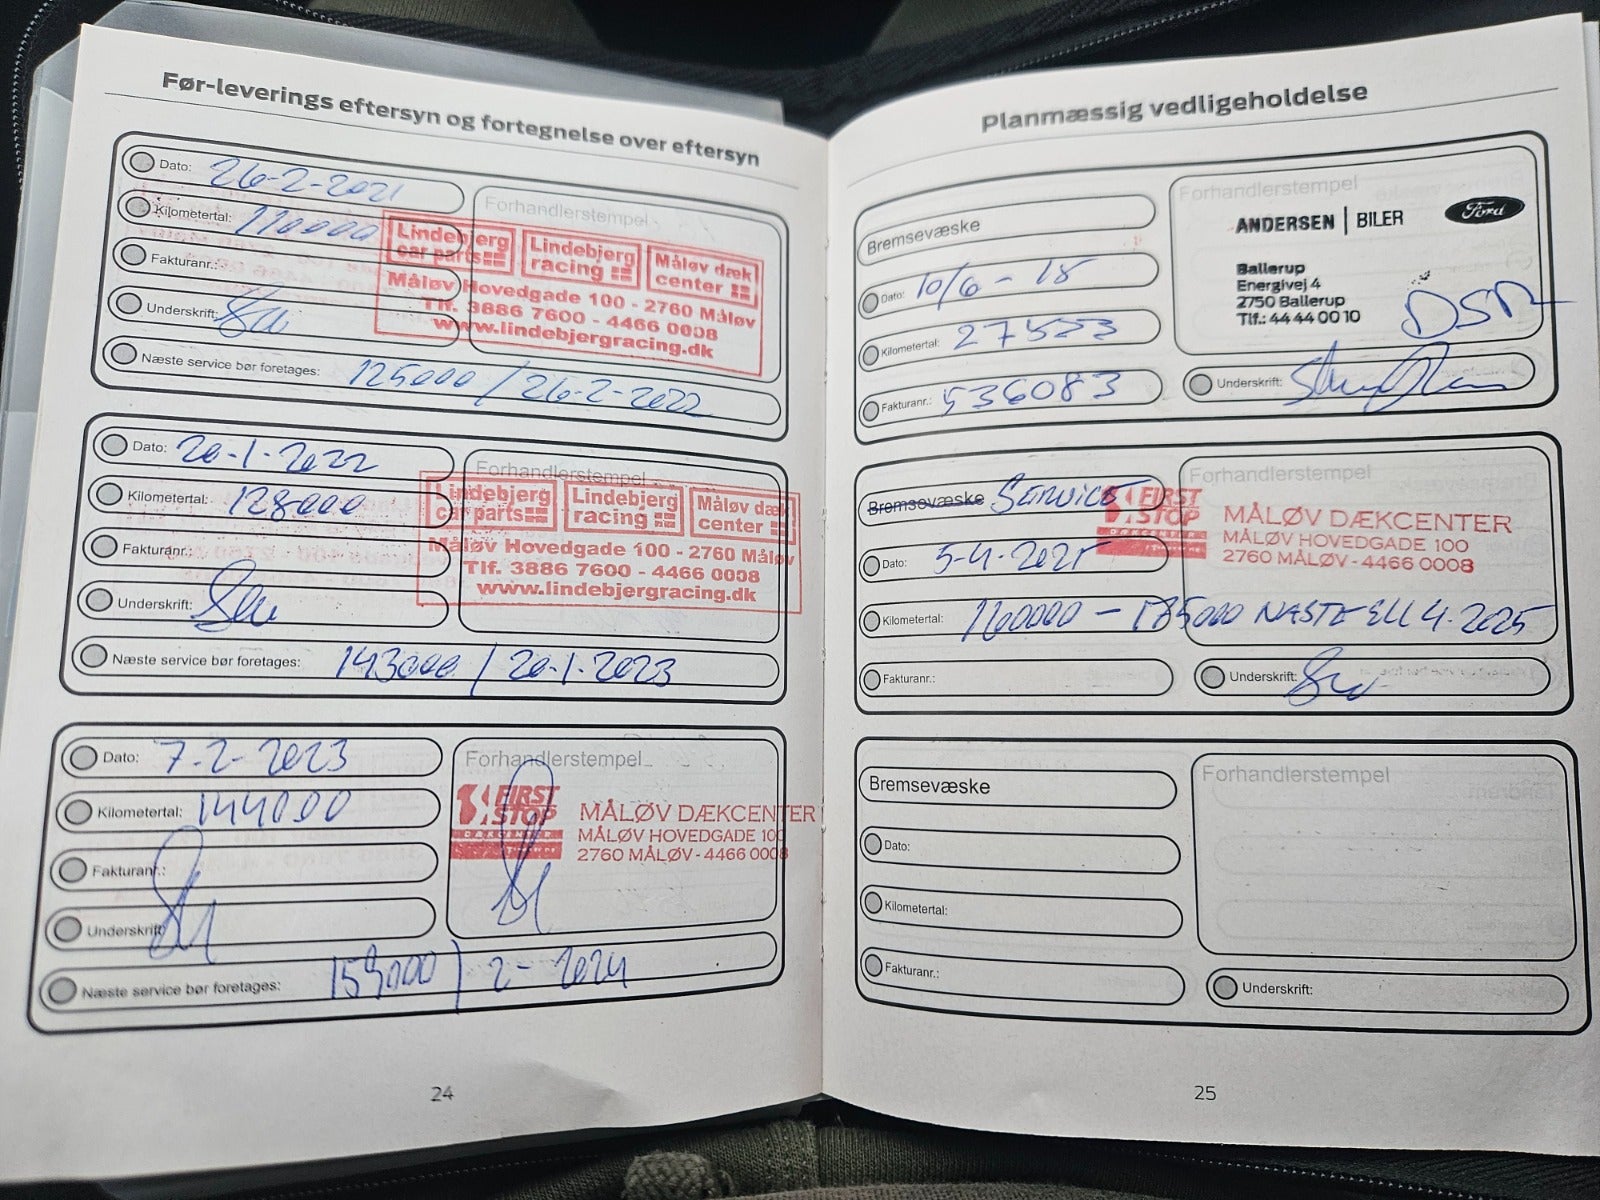 Før-leverings eftersyn og fortegnelse over eftersyn
Dato: 26-2-2021
Kilometertal: 110000
Fakturanr.:
Underskrift:
Næste service bør foretages: 125000 / 26-2-2022
Forhandlerstempel
Lindebjerg car parts
Lindebjerg racing
Måløv dæk center
Måløv Hovedgade 100 - 2760 Måløv
Tlf. 3886 7600 - 4466 0008
www.lindebjergracing.dk
Dato: 20-1-2022
Kilometertal: 128000
Fakturanr.:
Underskrift:
Næste service bør foretages: 143000 / 20-1-2023
Forhandlerstempel
Lindebjerg car parts
Lindebjerg racing
Måløv dæk center
Måløv Hovedgade 100 - 2760 Måløv
Tlf. 3886 7600 - 4466 0008
www.lindebjergracing.dk
Dato: 7-2-2023
Kilometertal: 144000
Fakturanr.:
Underskrift:
Næste service bør foretages: 159000 / 2-2024
Forhandlerstempel
FIRST STOP
DÆKCENTER
MÅLØV DÆKCENTER
MÅLØV HOVEDGADE 100
2760 MÅLØV - 4466 0008
24
Planmæssig vedligeholdelse
Bremsevæske
Dato: 10/6-15
Kilometertal: 27553
Fakturanr.: 536083
Forhandlerstempel
ANDERSEN | BILER
Ford
Ballerup
Energivej 4
2750 Ballerup
Tlf.: 44 44 00 10
Underskrift:
Bremsevæske SERVICE
Dato: 5-4-
Kilometertal: 160000 - 175000 NÆSTE ELL 4-2025
Fakturanr.:
Forhandlerstempel
FIRST STOP
MÅLØV DÆKCENTER
MÅLØV HOVEDGADE 100
2760 MÅLØV - 4466 0008
Underskrift:
Bremsevæske
Dato:
Kilometertal:
Fakturanr.:
Forhandlerstempel
Underskrift:
25